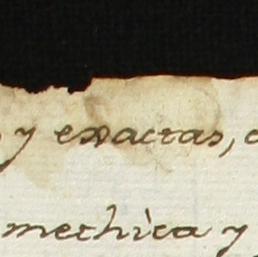 y exactas,
mechica y